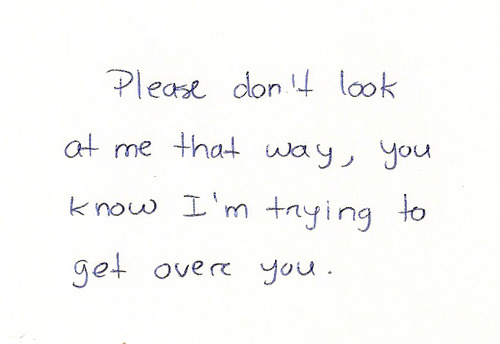 Please don't look
at me that way, you
know I'm trying to
get over you.